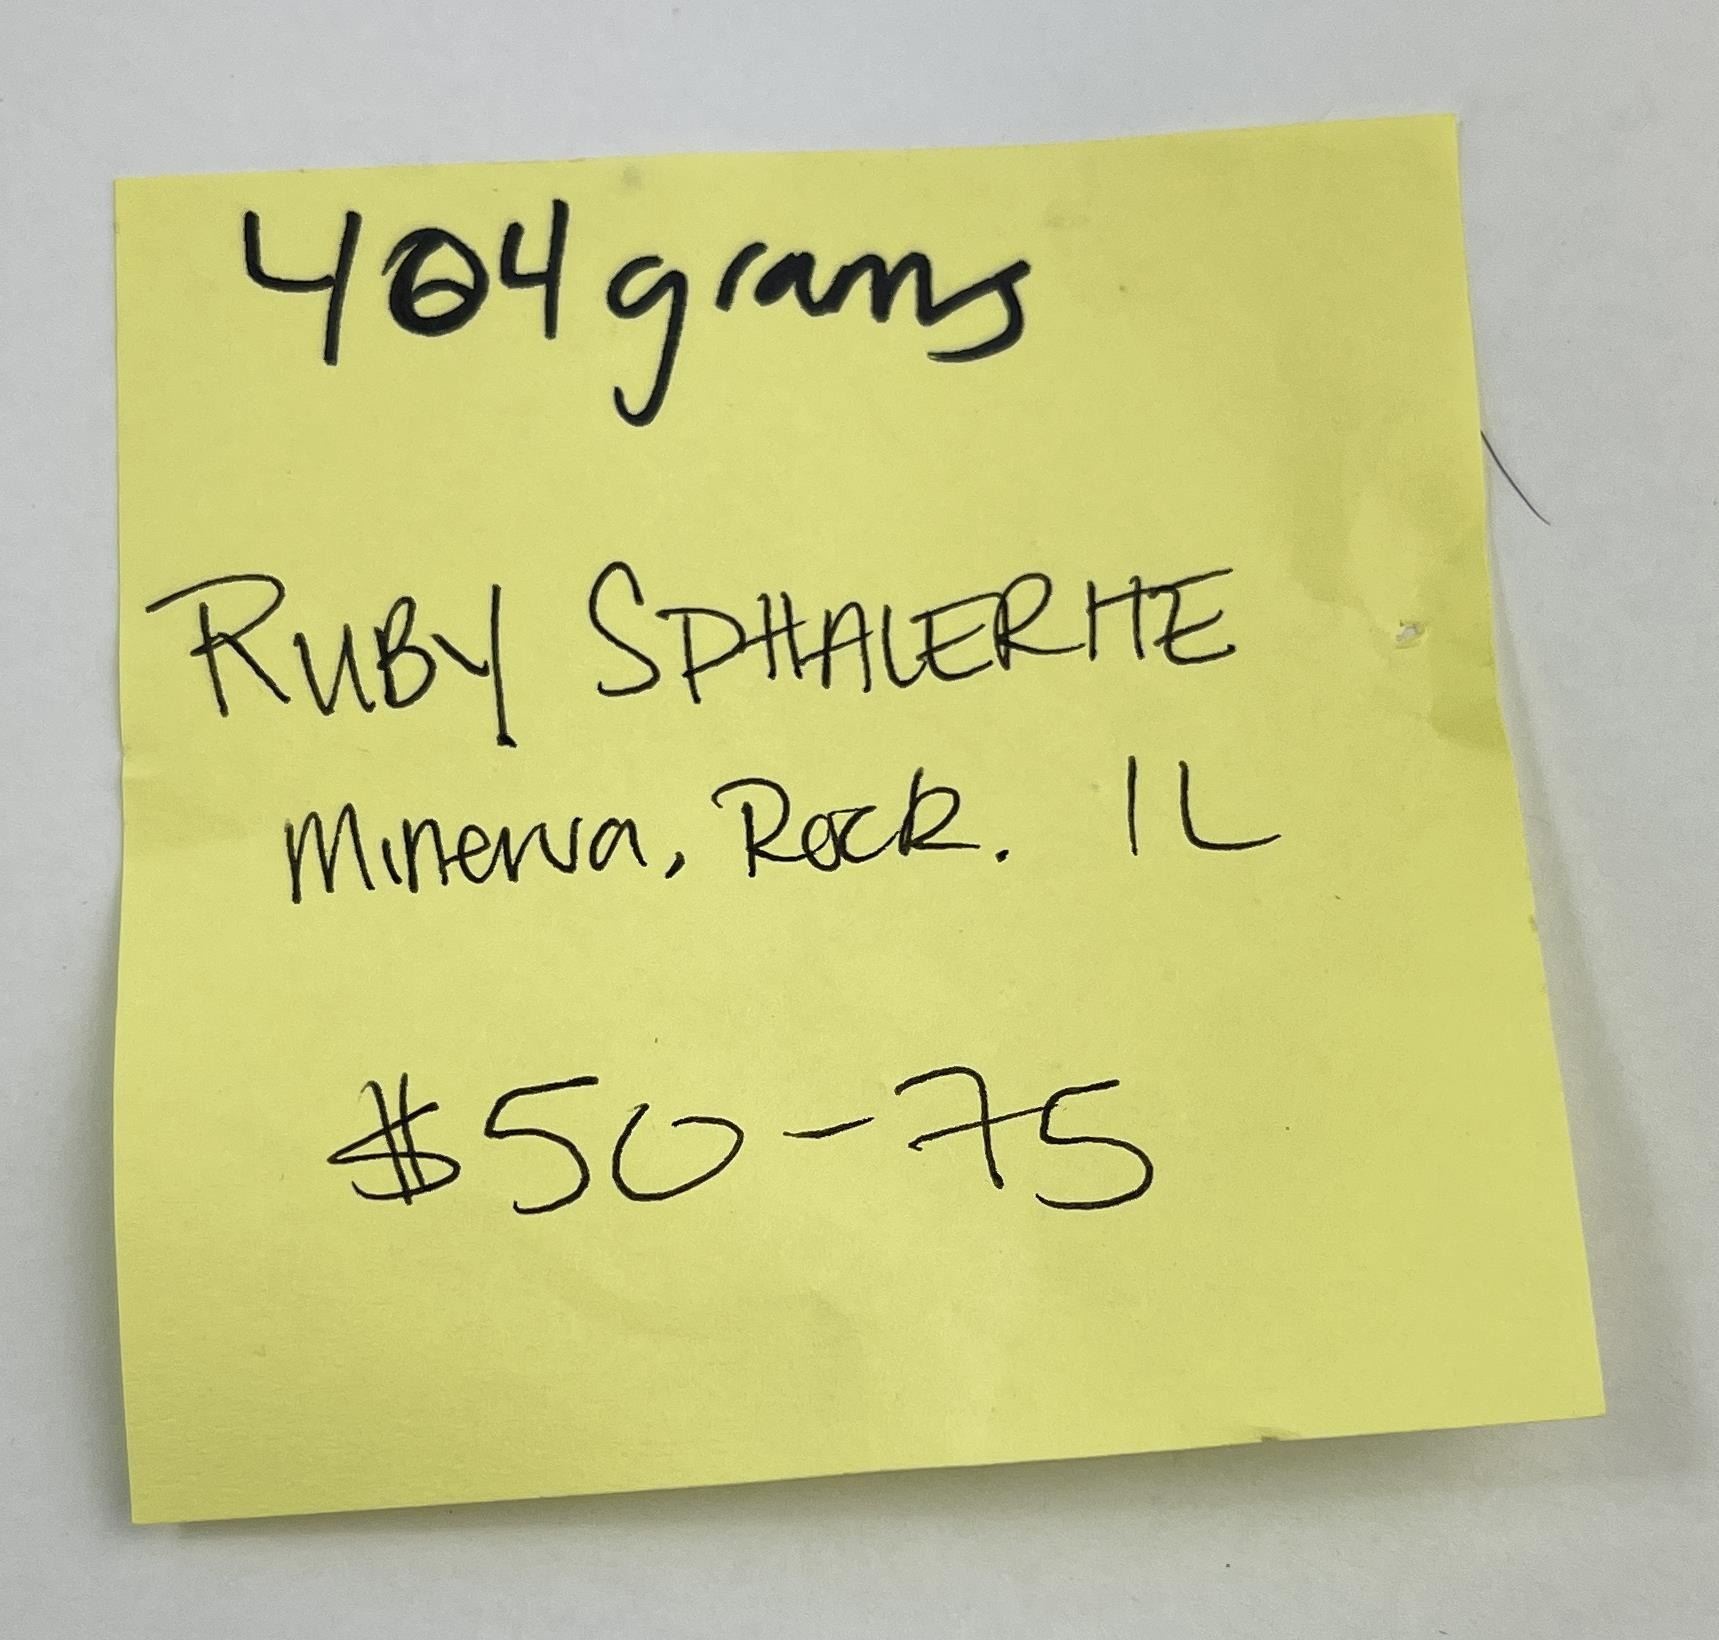 404 grams
RUBY SPHALERITE
Minerva, Rock. IL
$50-75